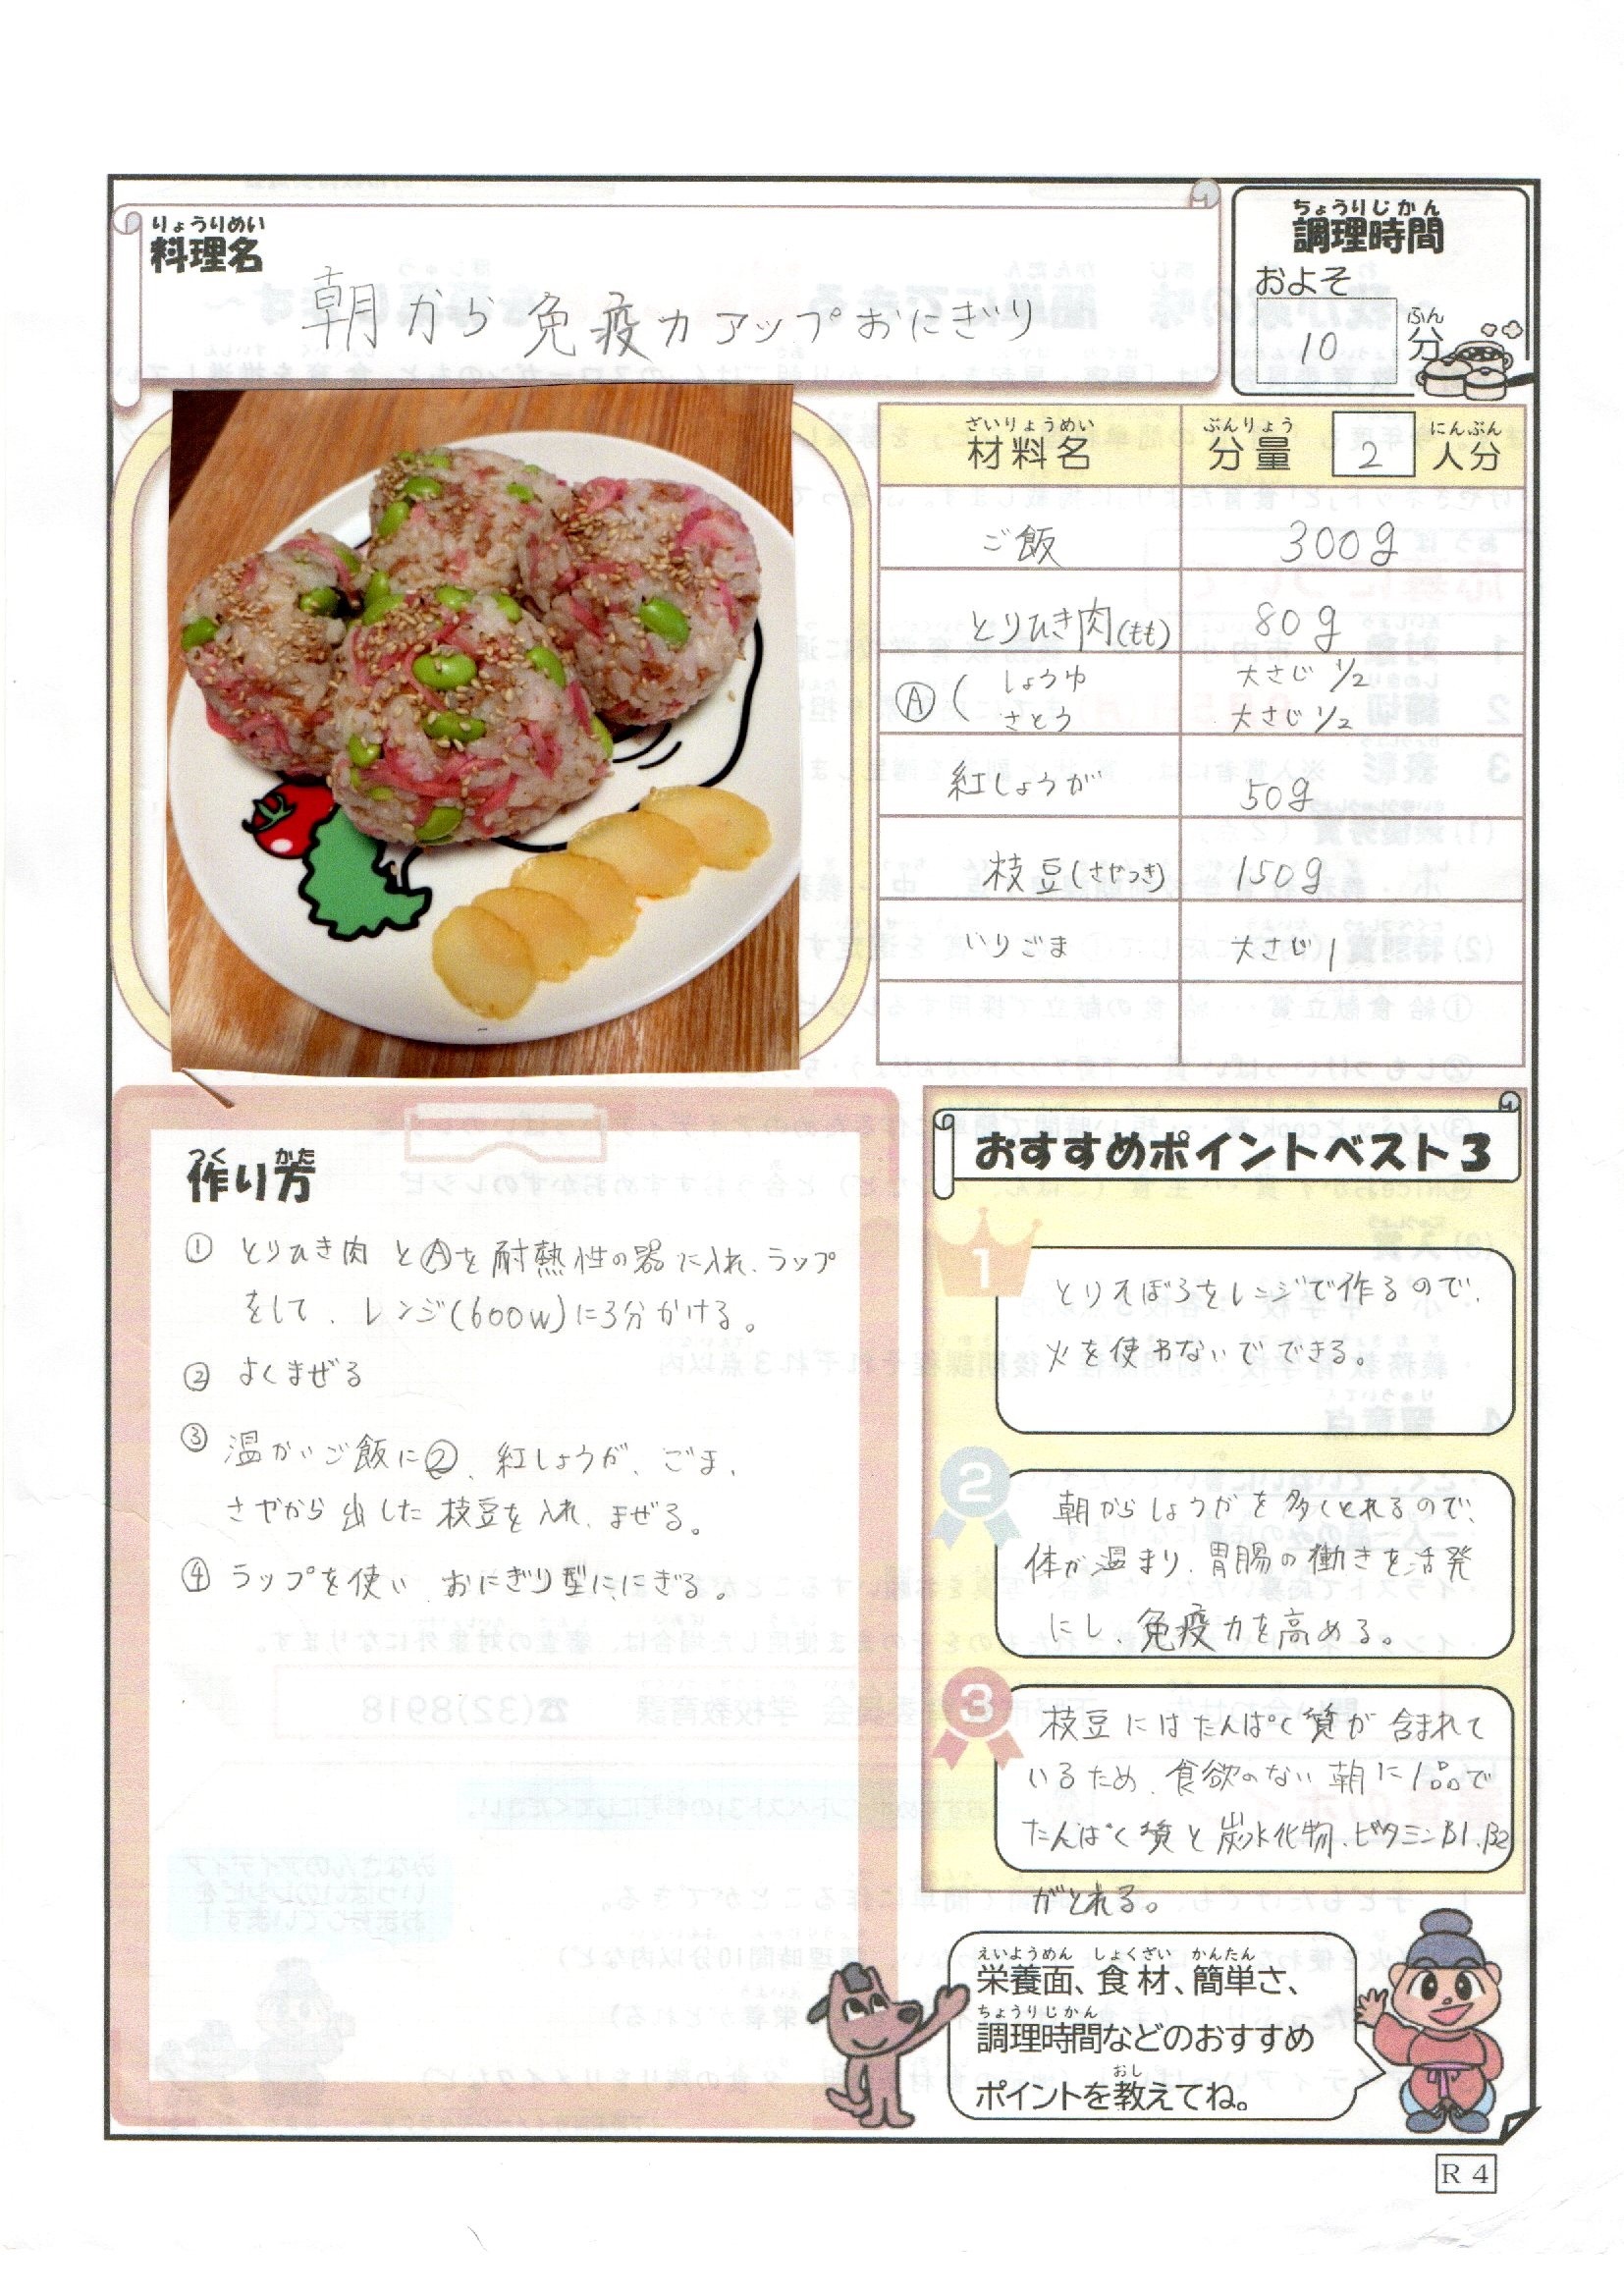 りょうりめい
料理名
朝から免疫力アップおにぎり
ちょうりじかん
調理時間
およそ
10 分
ふん
ざいりょうめい ぶんりょう にんぶん
材料名 分量 2 人分
ご飯 300g
とりひき肉(もも) 80g
Ⓐ( しょうゆ 大さじ1/2
さとう 大さじ1/2
紅しょうが 50g
枝豆(さやつき) 150g
いりごま 大さじ1
つく かた
作り方
① とりひき肉とⒶを耐熱性の器に入れ、ラップ
をして、レンジ(600W)に3分かける。
② よくまぜる
③ 温かいご飯に②、紅しょうが、ごま、
さやから出した枝豆を入れ、まぜる。
④ ラップを使い、おにぎり型ににぎる。
おすすめポイントベスト3
1
とりそぼろをレンジで作るので、
火を使わないでできる。
2
朝からしょうがを多くとれるので、
体が温まり、胃腸の働きを活発
にし、免疫力を高める。
3
枝豆にはたんぱく質が含まれて
いるため、食欲のない朝に1品で
たんぱく質と炭水化物、ビタミンB1、B2
がとれる。
えいようめん しょくざい かんたん
栄養面、食材、簡単さ、
ちょうりじかん
調理時間などのおすすめ
おし
ポイントを教えてね。
R 4